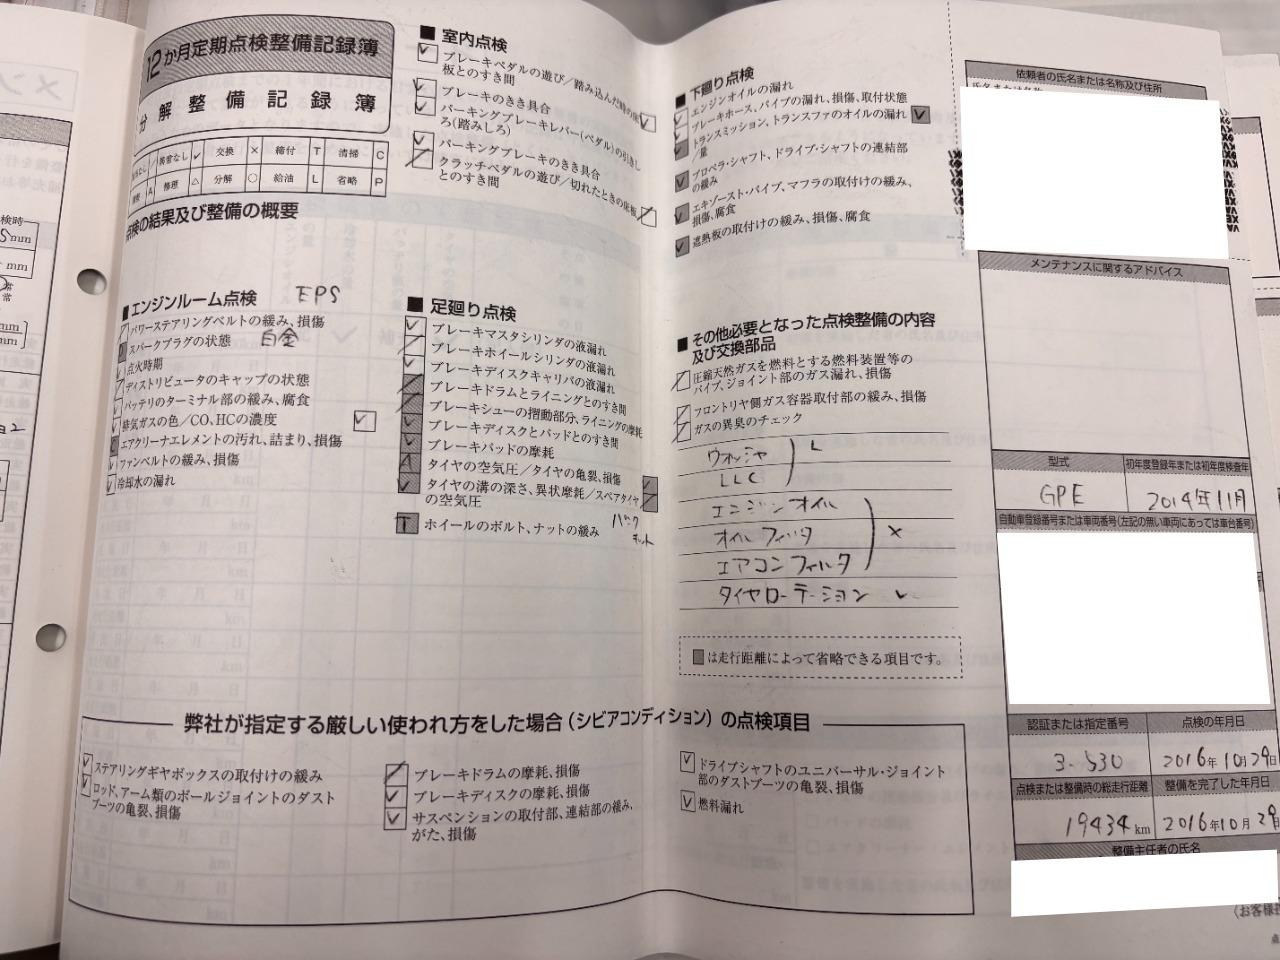 12か月定期点検整備記録簿
分解整備記録簿
交換 × 締付 T 清掃 C
A 修理 △ 分解 ○ 給油 L 省略 P
点検の結果及び整備の概要
■ エンジンルーム点検 EPS
パワーステアリングベルトの緩み、損傷
スパークプラグの状態 白金
点火時期
ディストリビュータのキャップの状態
バッテリのターミナル部の緩み、腐食
排気ガスの色/CO、HCの濃度
エアクリーナエレメントの汚れ、詰まり、損傷
ファンベルトの緩み、損傷
冷却水の漏れ
■ 室内点検
ブレーキペダルの遊び/踏み込んだ時の床
板とのすき間
ブレーキのきき具合
パーキングブレーキレバー(ペダル)の引きし
ろ(踏みしろ)
パーキングブレーキのきき具合
クラッチペダルの遊び/切れたときの床板
とのすき間
■ 足廻り点検
ブレーキマスタシリンダの液漏れ
ブレーキホイールシリンダの液漏れ
ブレーキディスクキャリパの液漏れ
ブレーキドラムとライニングとのすき間
ブレーキシューの摺動部分、ライニングの摩耗
ブレーキディスクとパッドとのすき間
ブレーキパッドの摩耗
A タイヤの空気圧/タイヤの亀裂、損傷
タイヤの溝の深さ、異状摩耗/スペアタイヤ
の空気圧
T ホイールのボルト、ナットの緩み パンク
キット
■ 下廻り点検
エンジンオイルの漏れ
ブレーキホース、パイプの漏れ、損傷、取付状態
トランスミッション、トランスファのオイルの漏れ
/量
プロペラ・シャフト、ドライブ・シャフトの連結部
の緩み
エキゾースト・パイプ、マフラの取付けの緩み、
損傷、腐食
遮熱板の取付けの緩み、損傷、腐食
■ その他必要となった点検整備の内容
及び交換部品
圧縮天然ガスを燃料とする燃料装置等の
パイプ、ジョイント部のガス漏れ、損傷
フロントリヤ側ガス容器取付部の緩み、損傷
ガスの異臭のチェック
ウォッシャ L
LLC
エンジンオイル
オイルフィルタ ×
エアコンフィルタ
タイヤローテーション ✓
は走行距離によって省略できる項目です。
弊社が指定する厳しい使われ方をした場合(シビアコンディション)の点検項目
ステアリングギヤボックスの取付けの緩み
ロッド、アーム類のボールジョイントのダスト
ブーツの亀裂、損傷
ブレーキドラムの摩耗、損傷
ブレーキディスクの摩耗、損傷
サスペンションの取付部、連結部の緩み、
がた、損傷
ドライブシャフトのユニバーサル・ジョイント
部のダストブーツの亀裂、損傷
燃料漏れ
依頼者の氏名または名称及び住所
メンテナンスに関するアドバイス
型式 初年度登録年または初年度検査年
GPE 2014年11月
自動車登録番号または車両番号(左記の無い車両にあっては車台番号)
認証または指定番号 点検の年月日
3-530 2016年10月29日
点検または整備時の総走行距離 整備を完了した年月日
19434 km 2016年10月29日
整備主任者の氏名